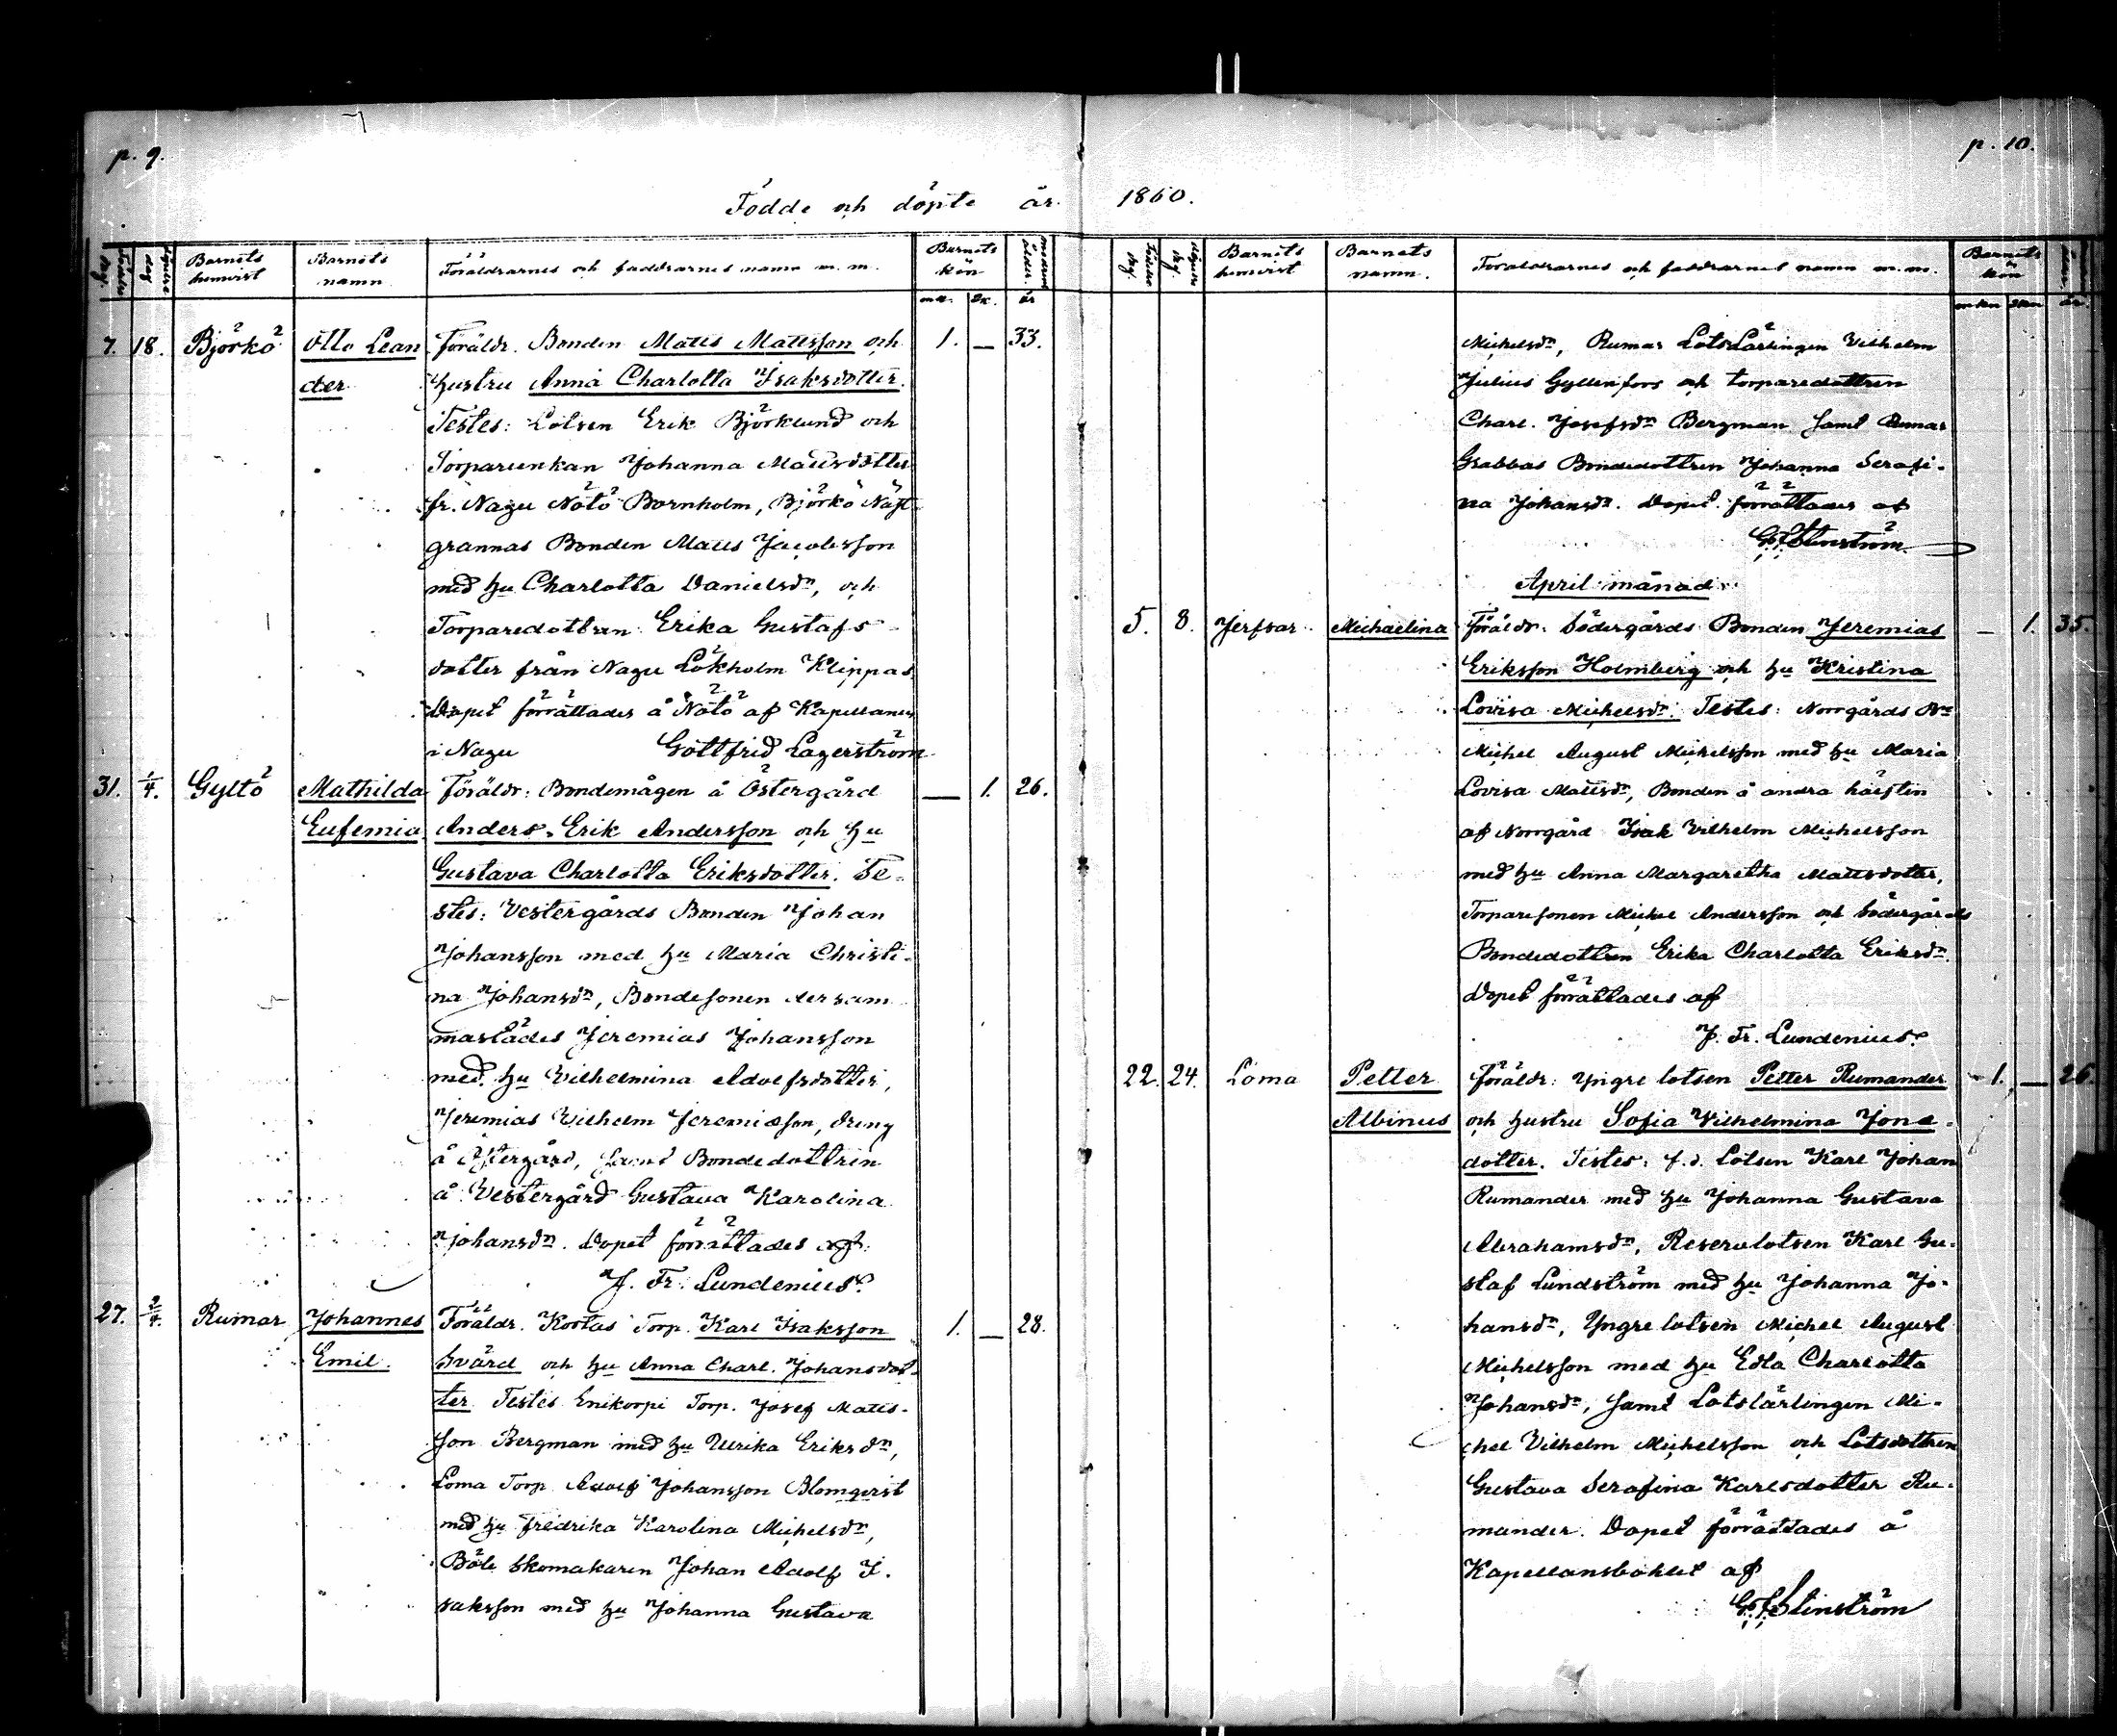 p. 9.
p. 10.
Födde och döpte år 1860.
Födelse dag
Döpelse dag
Barnets hemvist
Barnets namn
Föräldrarnes och faddrarnes namn m. m.
Barnets kön
mk. qk.
Modrens ålder. år
7. 18. Björkö Otto Lean Föräldr. Bonden Matts Mattsson och 1. — 33.
der hustru Anna Charlotta Isaksdotter.
Testes: Lotsen Erik Björklund och
Torpareenkan Johanna Mattsdotter
fr. Nagu Nötö Bornholm, Björkö Näst
grannas Bonden Matts Jacobsson
med hu Charlotta Danielsdr, och
Torparedottren Erika Gustafs
dotter från Nagu Lökholm Klippas
Dopet förrättades å Nötö af Kapellanen
i Nagu Gottfrid Lagerström
31. 1/4. Gyltö Mathilda Föräldr: Bondemågen å Östergård — 1. 26.
Eufemia Anders Erik Andersson och hu
Gustava Charlotta Eriksdotter. Te-
stes: Vestergårds Bonden Johan
Johansson med hu Maria Christi-
na Johansdr, Bondesonen dersam
mastädes Jeremias Johansson
med hu Vilhelmina Adolfsdotter,
Jeremias Vilhelm Jeremiasson, dreng
å Östergård, samt Bondedottren
å Vestergård Gustava Karolina
Johansdr. Dopet förrättades af
J. Fr. Lundenius.
27. 2/4. Rumar Johannes Föräldr. Kortas Torp. Karl Isaksson 1. — 28.
Emil. Svärd och hu Anna Charl. Johansdot-
ter Testes Enikorpi Torp. Josef Matts-
son Bergman med hu Ulrika Eriksdr,
Loma Torp Adolf Johansson Blomqvist
med hu Fredrika Karolina Michelsdr,
Böle Skomakaren Johan Adolf I-
saksson med hu Johanna Gustava
Födelse dag
Döpelse dag
Barnets hemvist
Barnets namn.
Föräldrarnes och faddrarnes namn m. m.
Barnets kön
mkn qkn år.
Michelsdr, Rumar LotsLärlingen Vilhelm
Julius Gyllenfors och torparedottren
Charl. Josefsdr Bergman samt Rumar
Grabbas Bondedottren Johanna Serafi-
na Johansdr. Dopet förrättades af
G. F. Stenström
April månad
5. 8. Jerfsar Michaelina Föräldr. Södergårds Bonden Jeremias — 1. 35.
Eriksson Holmberg och hu Kristina
Lovisa Michelsdr. Testes: Norrgårds Bn
Michel August Michelsson med hu Maria
Lovisa Mattsdr, Bonden å andra hälften
af Norrgård Isak Vilhelm Michelsson
med hu Anna Margaretha Mattsdotter,
Torparesonen Michel Andersson och Södergårds
Bondedottren Erika Charlotta Eriksdr.
Dopet förrättades af
J. Fr. Lundenius.
22. 24. Loma Petter Föräldr: Yngre lotsen Petter Rumander 1. — 26.
Albinus och hustru Sofia Vilhelmina Jona-
dotter. Testes: f.d. Lotsen Karl Johan
Rumander med hu Johanna Gustava
Abrahamsdr, Reservlotsen Karl Gu-
staf Lundström med hu Johanna Jo-
hansdr, Yngre lotsen Michel August
Michelsson med hu Edla Charlotta
Johansdr, samt Lotslärlingen Mi-
chel Vilhelm Michelsson och Lotsdottren
Gustava Serafina Karlsdotter Ru-
mander. Dopet förrättades å
Kapellansbohlet af
G. F. Stenström